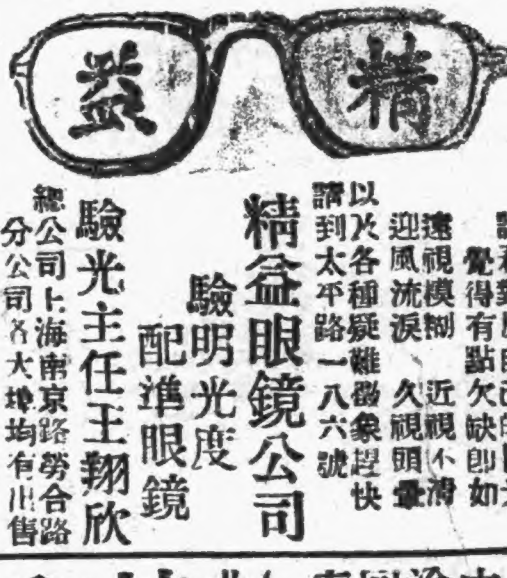 精益
覺得有點欠缺卽如
遠視模糊 近視不清
迎風流淚 久視頭暈
以及各種疑難徵象趕快
請到太平路一八六號
精益眼鏡公司
驗明光度
配準眼鏡
驗光主任王翔欣
總公司上海南京路勞合路
分公司各大埠均有出售